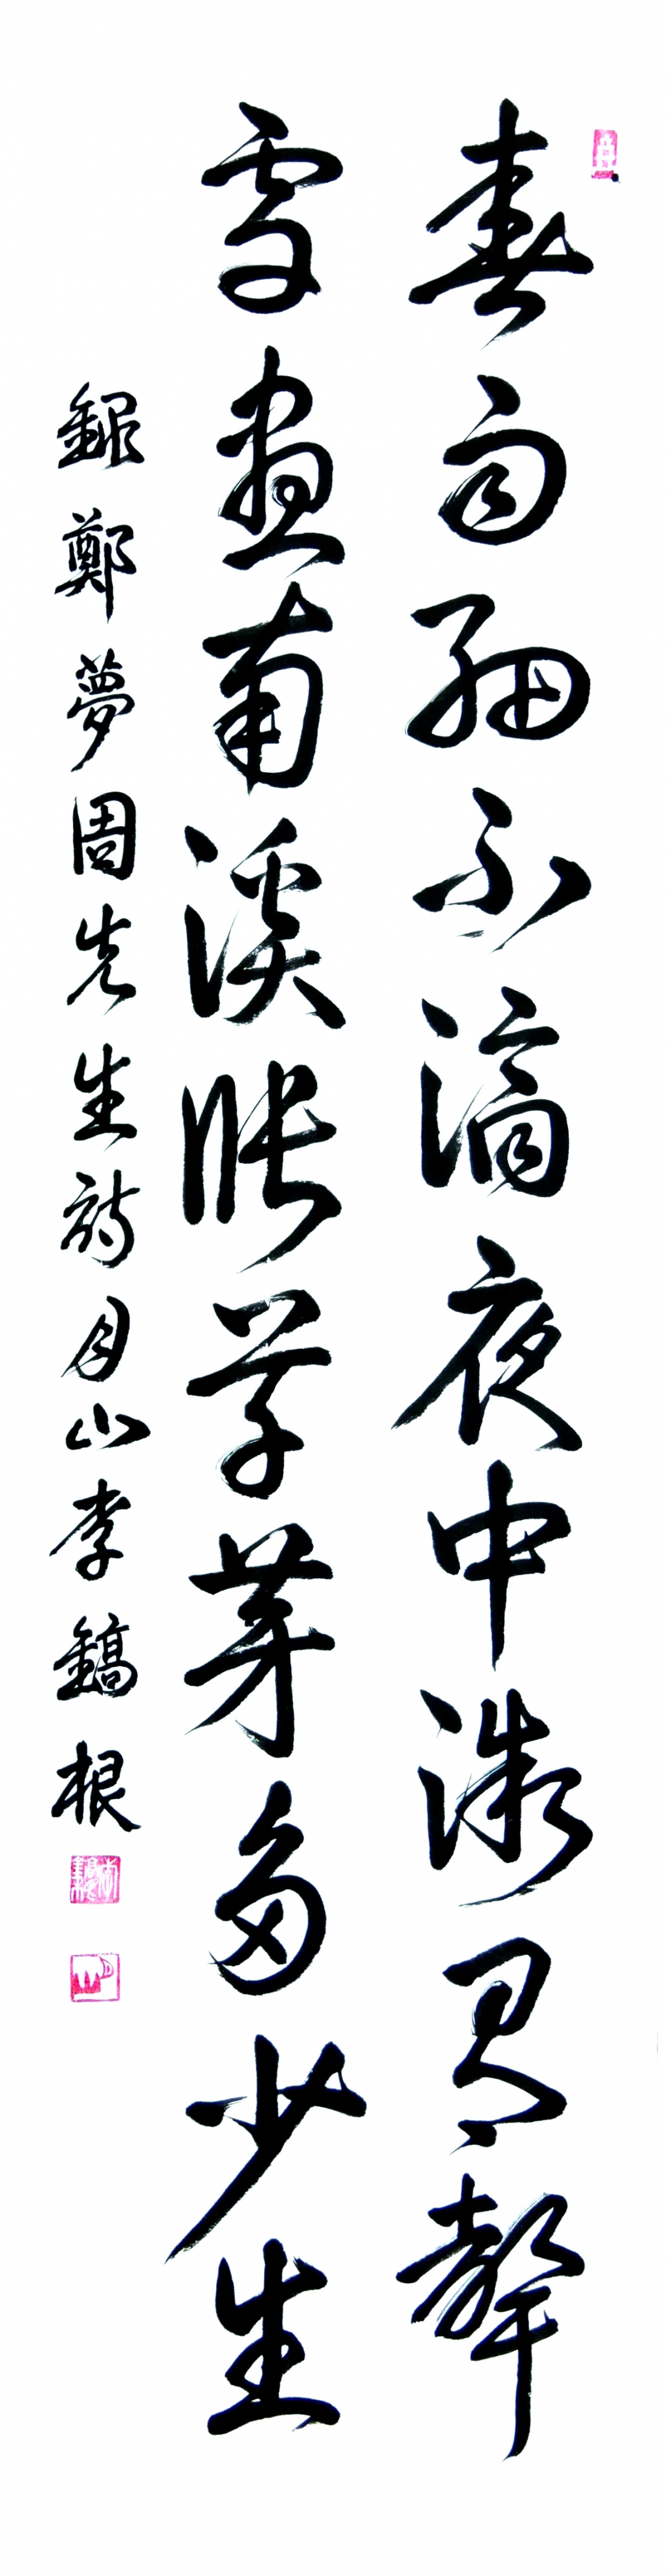 春雨細不滴夜中微有聲
雪盡南溪漲草芽多少生
錄鄭夢周先生詩月山李鎬根